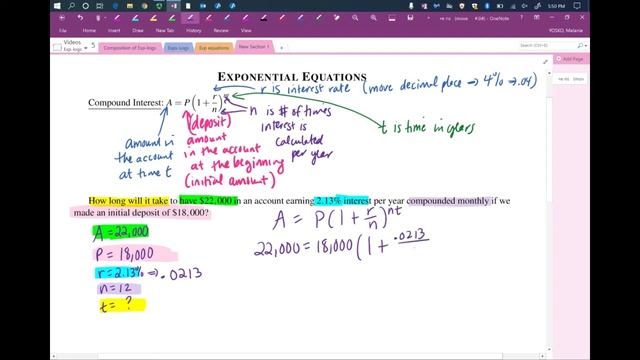 +e riu (move #04) - OneNote
YOSKO, Melanie
5:50 PM
Videos
Exp-logs
5
Composition of Exp-logs
Exps Logs
Exp equations
New Section 1
Add page
EXPONENTIAL EQUATIONS
r is interest rate (move decimal place → 4% → .04)
Compound Interest: A = P(1 + r/n)^nt
n is # of times
interest is
calculated
per year
t is time in years
amount in
the account
at time t
(deposit)
amount
in the account
at the beginning
(initial amount)
How long will it take to have $22,000 in an account earning 2.13% interest per year compounded monthly if we
made an initial deposit of $18,000?
A = 22,000
P = 18,000
r = 2.13% ⇒ .0213
n = 12
t = ?
A = P(1 + r/n)^nt
22,000 = 18,000 (1 + .0213